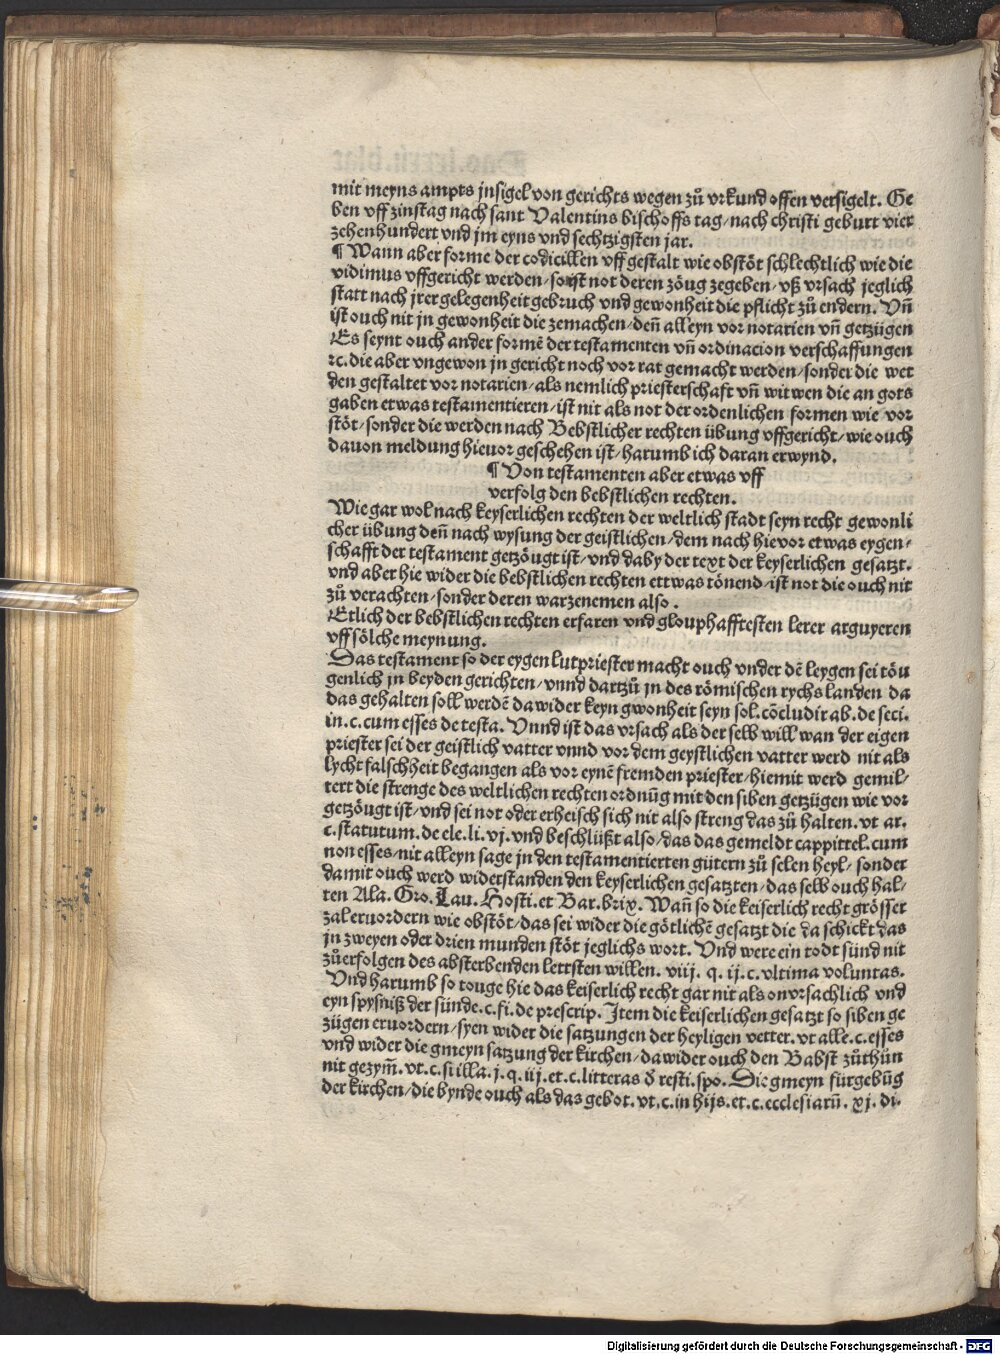 mit meyns ampts jnsigel von gerichts wegen zů vrkund offen versigelt. Ge
ben vff zinstag nach sant Valentins bischoffs tag/nach christi geburt vier
zehenhundert vnd jm eyns vnd sechtzigsten jar.
¶ Wann aber forme der codicillen vff gestalt wie obstöt schlechtlich wie die
vidimus vffgericht werden/so ist not deren zöug zegeben/vß vrsach jeglich
statt nach jrer gelegenheit gebruch vnd gewonheit die pflicht zů endern. Vñ
ist ouch nit jn gewonheit die zemachen/deñ alleyn vor notarien vñ getzügen
Es seynt ouch ander formē der testamenten vñ ordinacion verschaffungen
ꝛc. die aber vngewon jn gericht noch vor rat gemacht werden/sonder die wer
den gestaltet vor notarien/als nemlich priesterschaft vñ witwen die an gots
gaben etwas testamentieren/ist nit als not der ordenlichen formen wie vor
stöt/sonder die werden nach Bebstlicher rechten übung vffgericht/wie ouch
dauon meldung hieuor geschehen ist/harumb ich daran erwynd.
¶ Von testamenten aber etwas vff
verfolg den bebstlichen rechten.
Wie gar wol nach keyserlichen rechten der weltlich stadt seyn recht gewonli
cher übung deñ nach wysung der geistlichen/dem nach hievor etwas eygen/
schafft der testament getzöugt ist/vnd daby der text der keyserlichen gesatzt.
vnd aber hie wider die bebstlichen rechten ettwas tönend/ist not die ouch nit
zů verachten/sonder deren warzenemen also.
Etlich der bebstlichen rechten erfaren vnd glouphafftesten lerer arguyeren
vff sölche meynung.
Das testament so der eygen lutpriester macht ouch vnder dē leygen sei töu
genlich jn beyden gerichten/vnnd dartzů jn des römischen rychs landen da
das gehalten soll werdē da wider keyn gwonheit seyn sol. cōcludir ab. de seci.
in. c. cum esses de testa. Vnnd ist das vrsach als der selb will wan der eigen
priester sei der geistlich vatter vnnd vor dem geystlichen vatter werd nit als
lycht falschheit begangen als vor eynē fremden priester/hiemit werd gemil/
tert die strenge des weltlichen rechten ordnūg mit den siben getzügen wie vor
getzöugt ist/vnd sei not oder erheisch sich nit also streng das zů halten. vt ar.
c. statutum. de ele. li. vj. vnd beschlüßt also/das das gemeldt cappittel. cum
non esses/nit alleyn sage jn den testamentierten gütern zů selen heyl/sonder
damit ouch werd widerstanden den keyserlichen gesatzten/das selb ouch hal/
ten Ala. Gro. Lau. Hosti. et Bar. brix. Wañ so die keiserlich recht grösser
zal eruordern wie obstöt/das sei wider die götlichē gesatzt die da schickt das
jn zweyen oder drien munden stöt jeglichs wort. Vnd were ein todt sünd nit
zůerfolgen des absterbenden lettsten willen. viij. q. ij. c. vltima voluntas.
Vnd harumb so touge hie das keiserlich recht gar nit als onvrsachlich vnd
eyn spysniß der sünde. c. fi. de prescrip. Jtem die keiserlichen gesatzt so siben ge
zügen eruordern/syen wider die satzungen der heyligen vetter. vt alle. c. esses
vnd wider die gmeyn satzung der kirchen/da wider ouch den Babst zůthůn
nit gezym̄. vt. c. si illa. j. q. iij. et. c. litteras ð resti. spo. Die gmeyn fürgebūg
der kirchen/die bynde ouch als das gebot. vt. c. in hijs. et. c. ecclesiarū. xj. di.
Digitalisierung gefördert durch die Deutsche Forschungsgemeinschaft - DFG